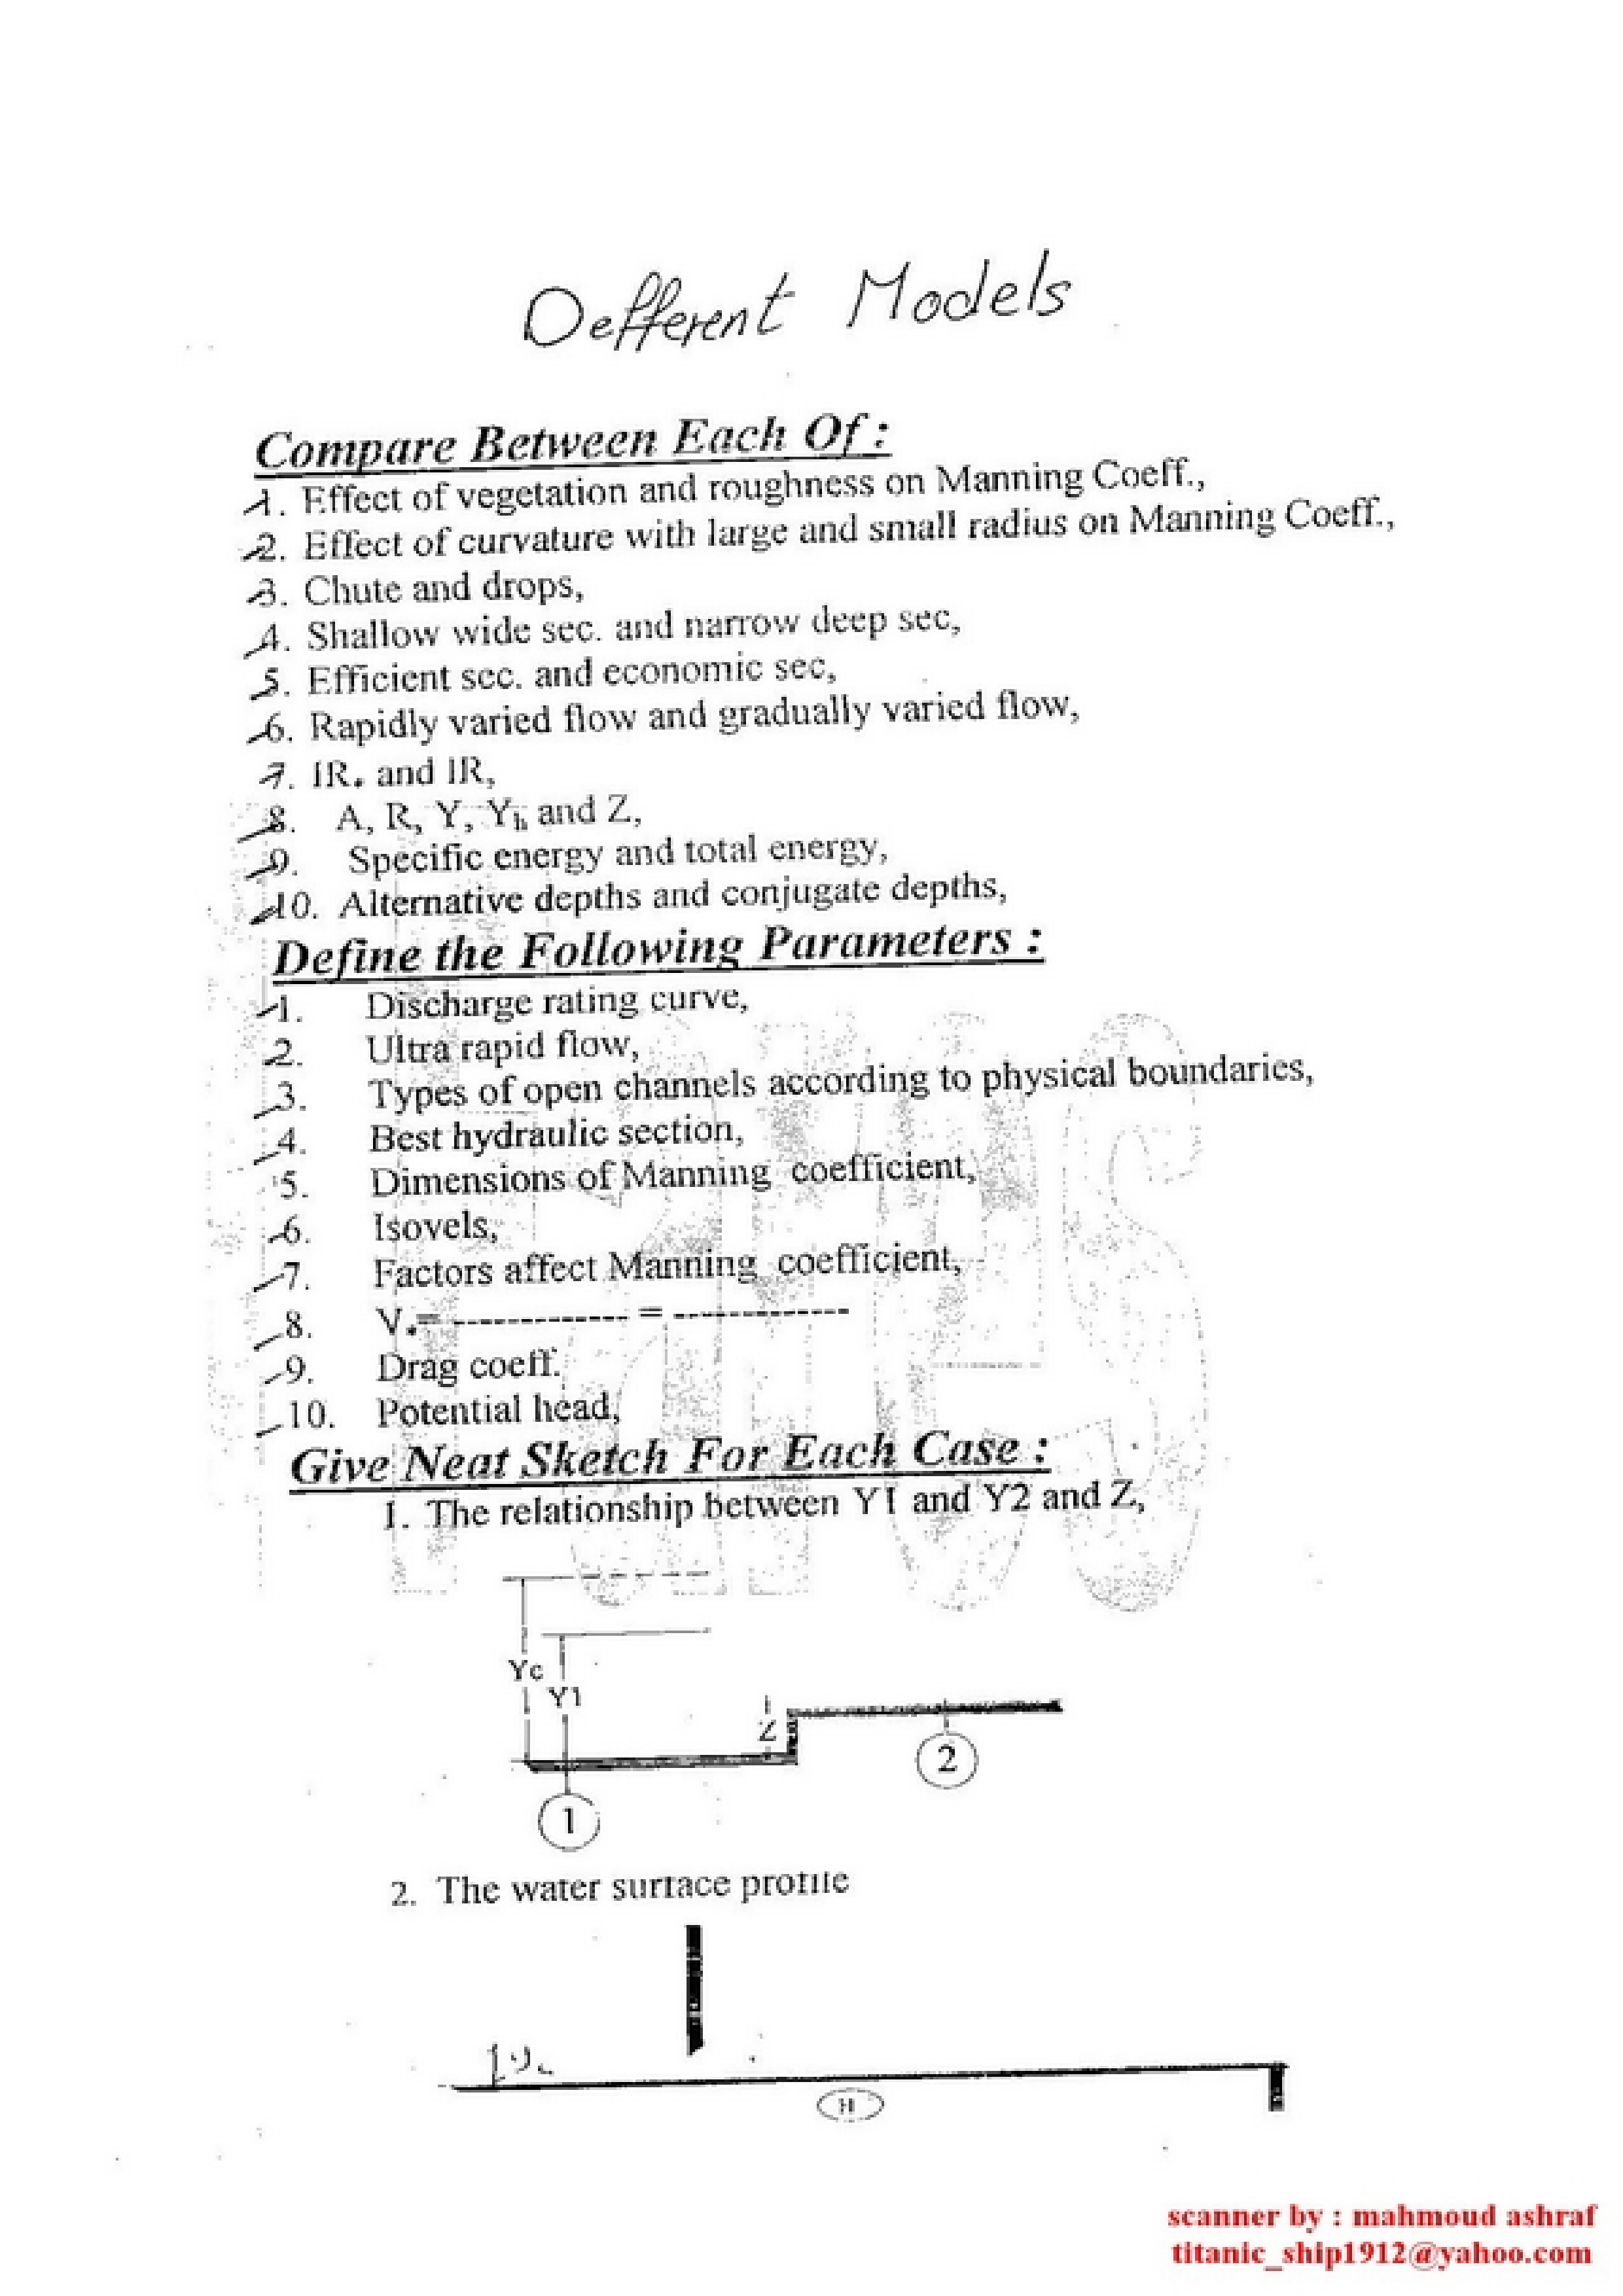 Defferent Models
Compare Between Each Of :
1. Effect of vegetation and roughness on Manning Coeff.,
2. Effect of curvature with large and small radius on Manning Coeff.,
3. Chute and drops,
4. Shallow wide sec. and narrow deep sec,
5. Efficient sec. and economic sec,
6. Rapidly varied flow and gradually varied flow,
7. IR* and IR,
8. A, R, Y, Yh and Z,
9. Specific energy and total energy,
10. Alternative depths and conjugate depths,
Define the Following Parameters :
1. Discharge rating curve,
2. Ultra rapid flow,
3. Types of open channels according to physical boundaries,
4. Best hydraulic section,
5. Dimensions of Manning coefficient,
6. Isovels,
7. Factors affect Manning coefficient,
8. V*= ------------- = -------------
9. Drag coeff.
10. Potential head,
Give Neat Sketch For Each Case :
1. The relationship between Y1 and Y2 and Z,
Yc
Y1
Z
2
1
2. The water surface profile
H
scanner by : mahmoud ashraf
titanic_ship1912@yahoo.com